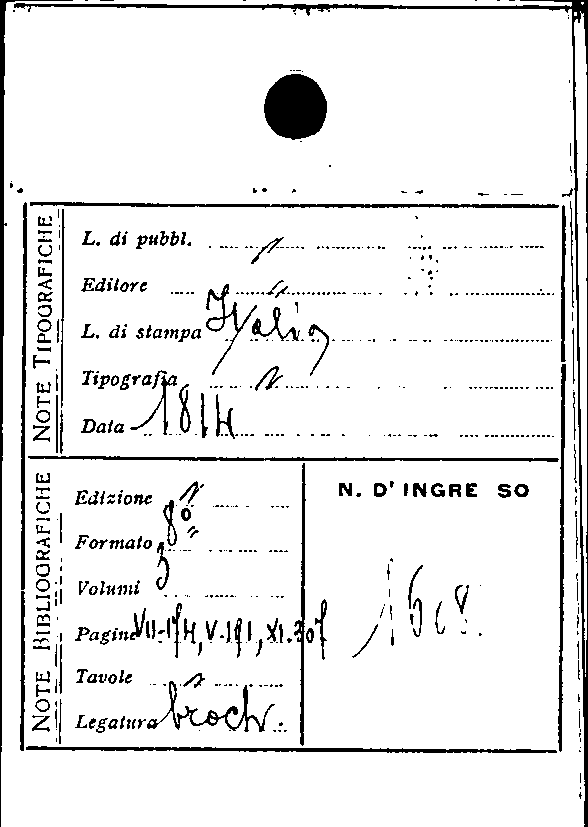 NOTE TIPOGRAFICHE
L. di pubbl. "
Editore "
L. di stampa Italia
Tipografia "
Data 1814
NOTE BIBLIOGRAFICHE
Edizione "
Formato 8°
Volumi 3
Pagine VII-174, V-191, XI-307
Tavole "
Legatura broch.
N. D'INGRESSO